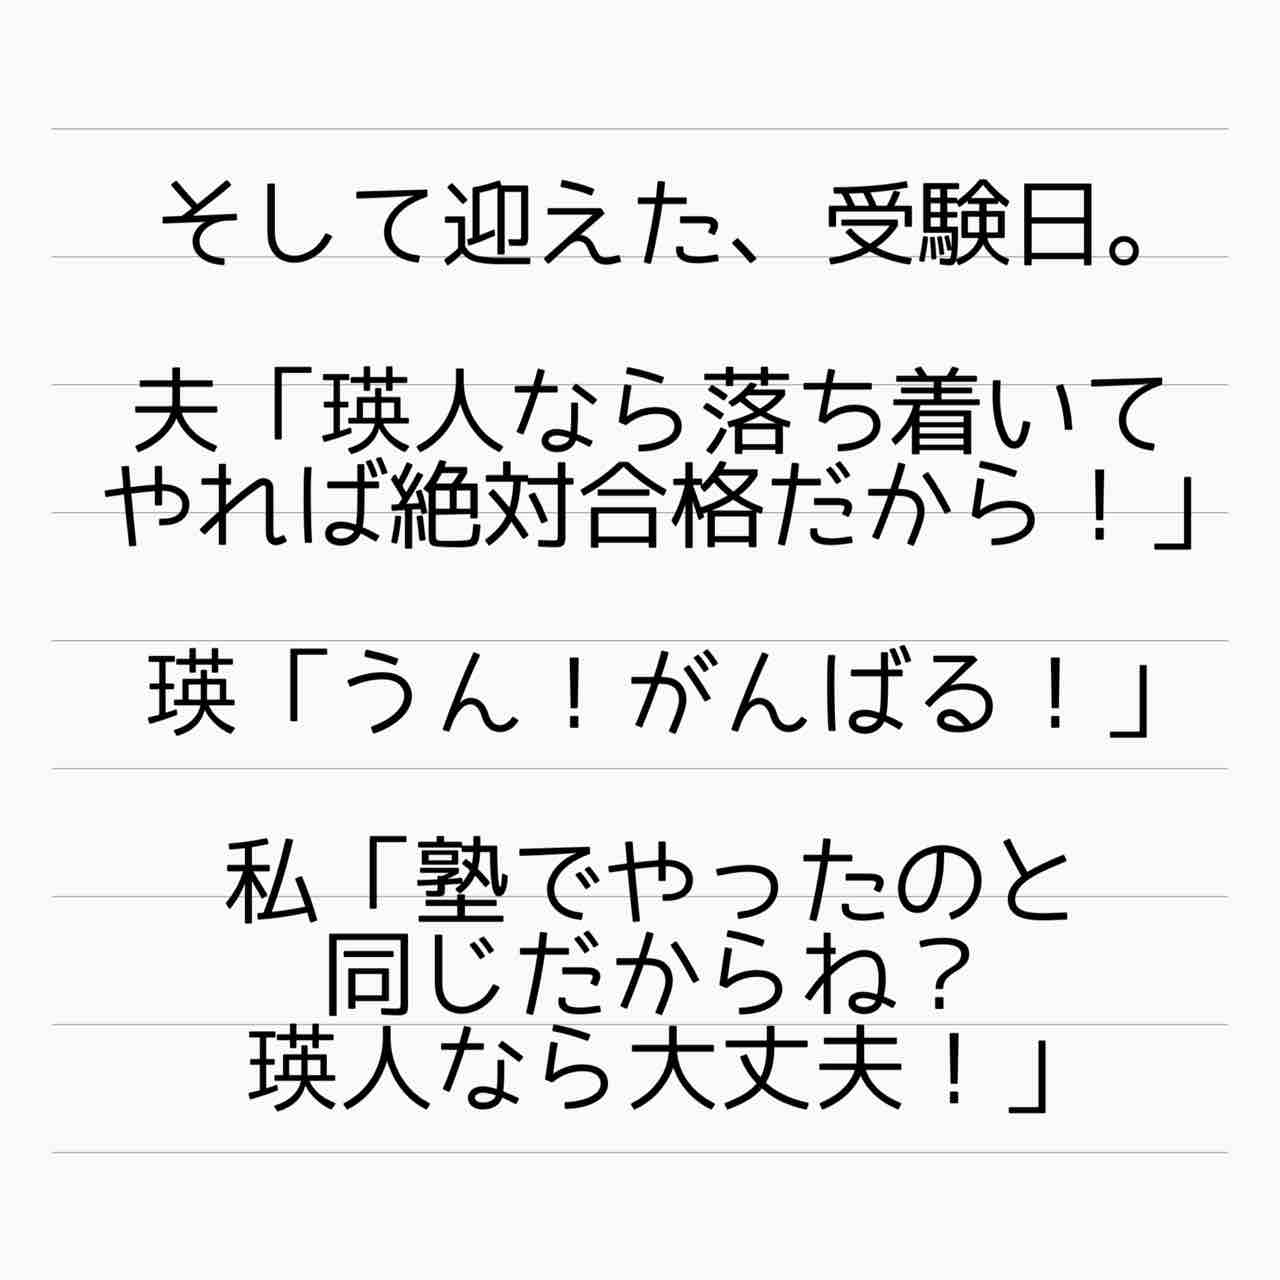 そして迎えた、受験日。
夫「瑛人なら落ち着いて
やれば絶対合格だから！」
瑛「うん！がんばる！」
私「塾でやったのと
同じだからね？
瑛人なら大丈夫！」